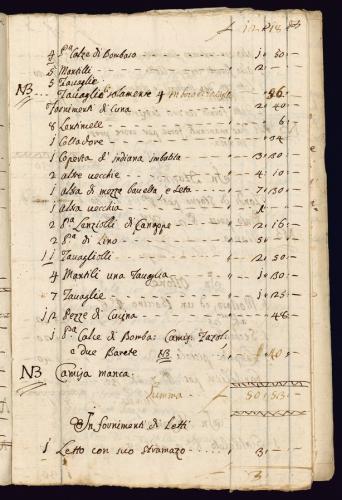 12 18
4 P.a Calze di Bombaso 1 50
5 Mantilli 2
5 Tavaglie
NB Tavaglie solamente 4 56
Fornimenti di Cuna 2 40
8 Lentimele 6
1 Colladore 34
1 Coperta d'indiana imbotita 13 30
2 altre vecchie 4 10
1 altra di mezza bavella e seta 7 30
1 altra vecchia 1
2 P.a Lenziolli di Canappe 2 16
2 P.a di Lino 5
11 Tavagliolli 2 50
4 Mantili una Tavaglia 1 30
7 Tavaglie 1 25
12 Pezze di Cucina 48
1 P.a Calce di Bomba:
e due Barete NB 40
NB Camisa manca
Summa 50 53
In fornimenti di Letti
1 Letto con suo stramazo 13
3